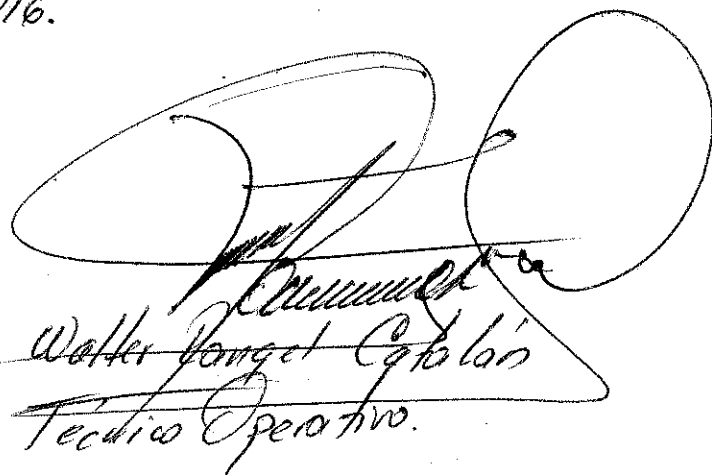 016.
Walter Rangel Catalán
Técnico Operativo.